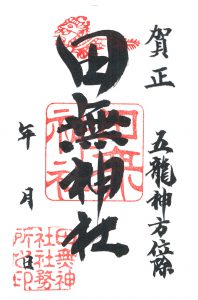 賀正
五龍神方位除
田無神社
年 月 日
田無神社
田無神社社務所之印